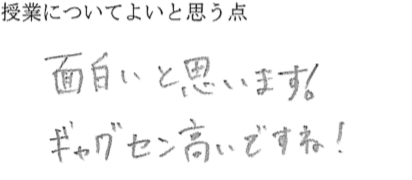 授業についてよいと思う点
面白いと思います!
ギャグセン高いですね!